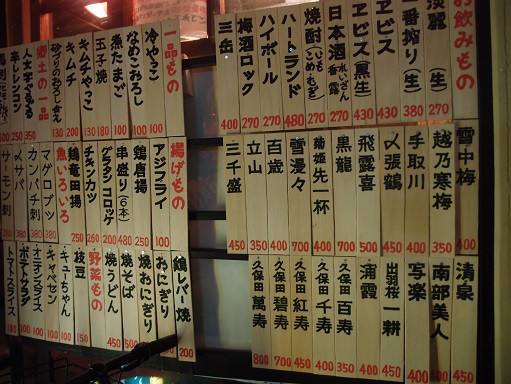 お飲みもの
淡麗(生) 270
一番搾り(生) 380
ヱビス 430
ヱビス黒生 430
日本酒 270
焼酎 270
ハーランド 480
ハイボール 270
梅酒ロック 270
三岳 400
雪中梅
越乃寒梅
手取川 400
〆張鶴 450
飛露喜 500
黒龍 700
菊姫 先一杯 400
雪漫々 700
百歳 400
立山 350
三千盛 450
清泉 450
南部美人 400
写楽 400
出羽桜一耕 400
浦霞 350
久保田百寿 350
久保田千寿 400
久保田紅寿 450
久保田碧寿 700
久保田萬寿 800
一品もの
冷やっこ 100
なめこおろし 100
煮たまご 100
玉子焼 180
キムチやっこ 130
キムチ 200
130
郷土の一品
350
辛子レンコン 250
揚げもの
アジフライ 100
鶏唐揚 250
串盛り(6本) 480
グラタンコロッケ 200
チキンカツ 250
鶏竜田揚 350
魚いろいろ
マグロブツ 380
カンパチ刺 380
〆サバ
サーモン刺
鶏レバー焼 200
おにぎり
焼おにぎり
焼そば
焼うどん
野菜もの
枝豆 150
キューちゃん 100
キャベセン 100
オニオンスライス 100
ポテトサラダ 100
トマトスライス